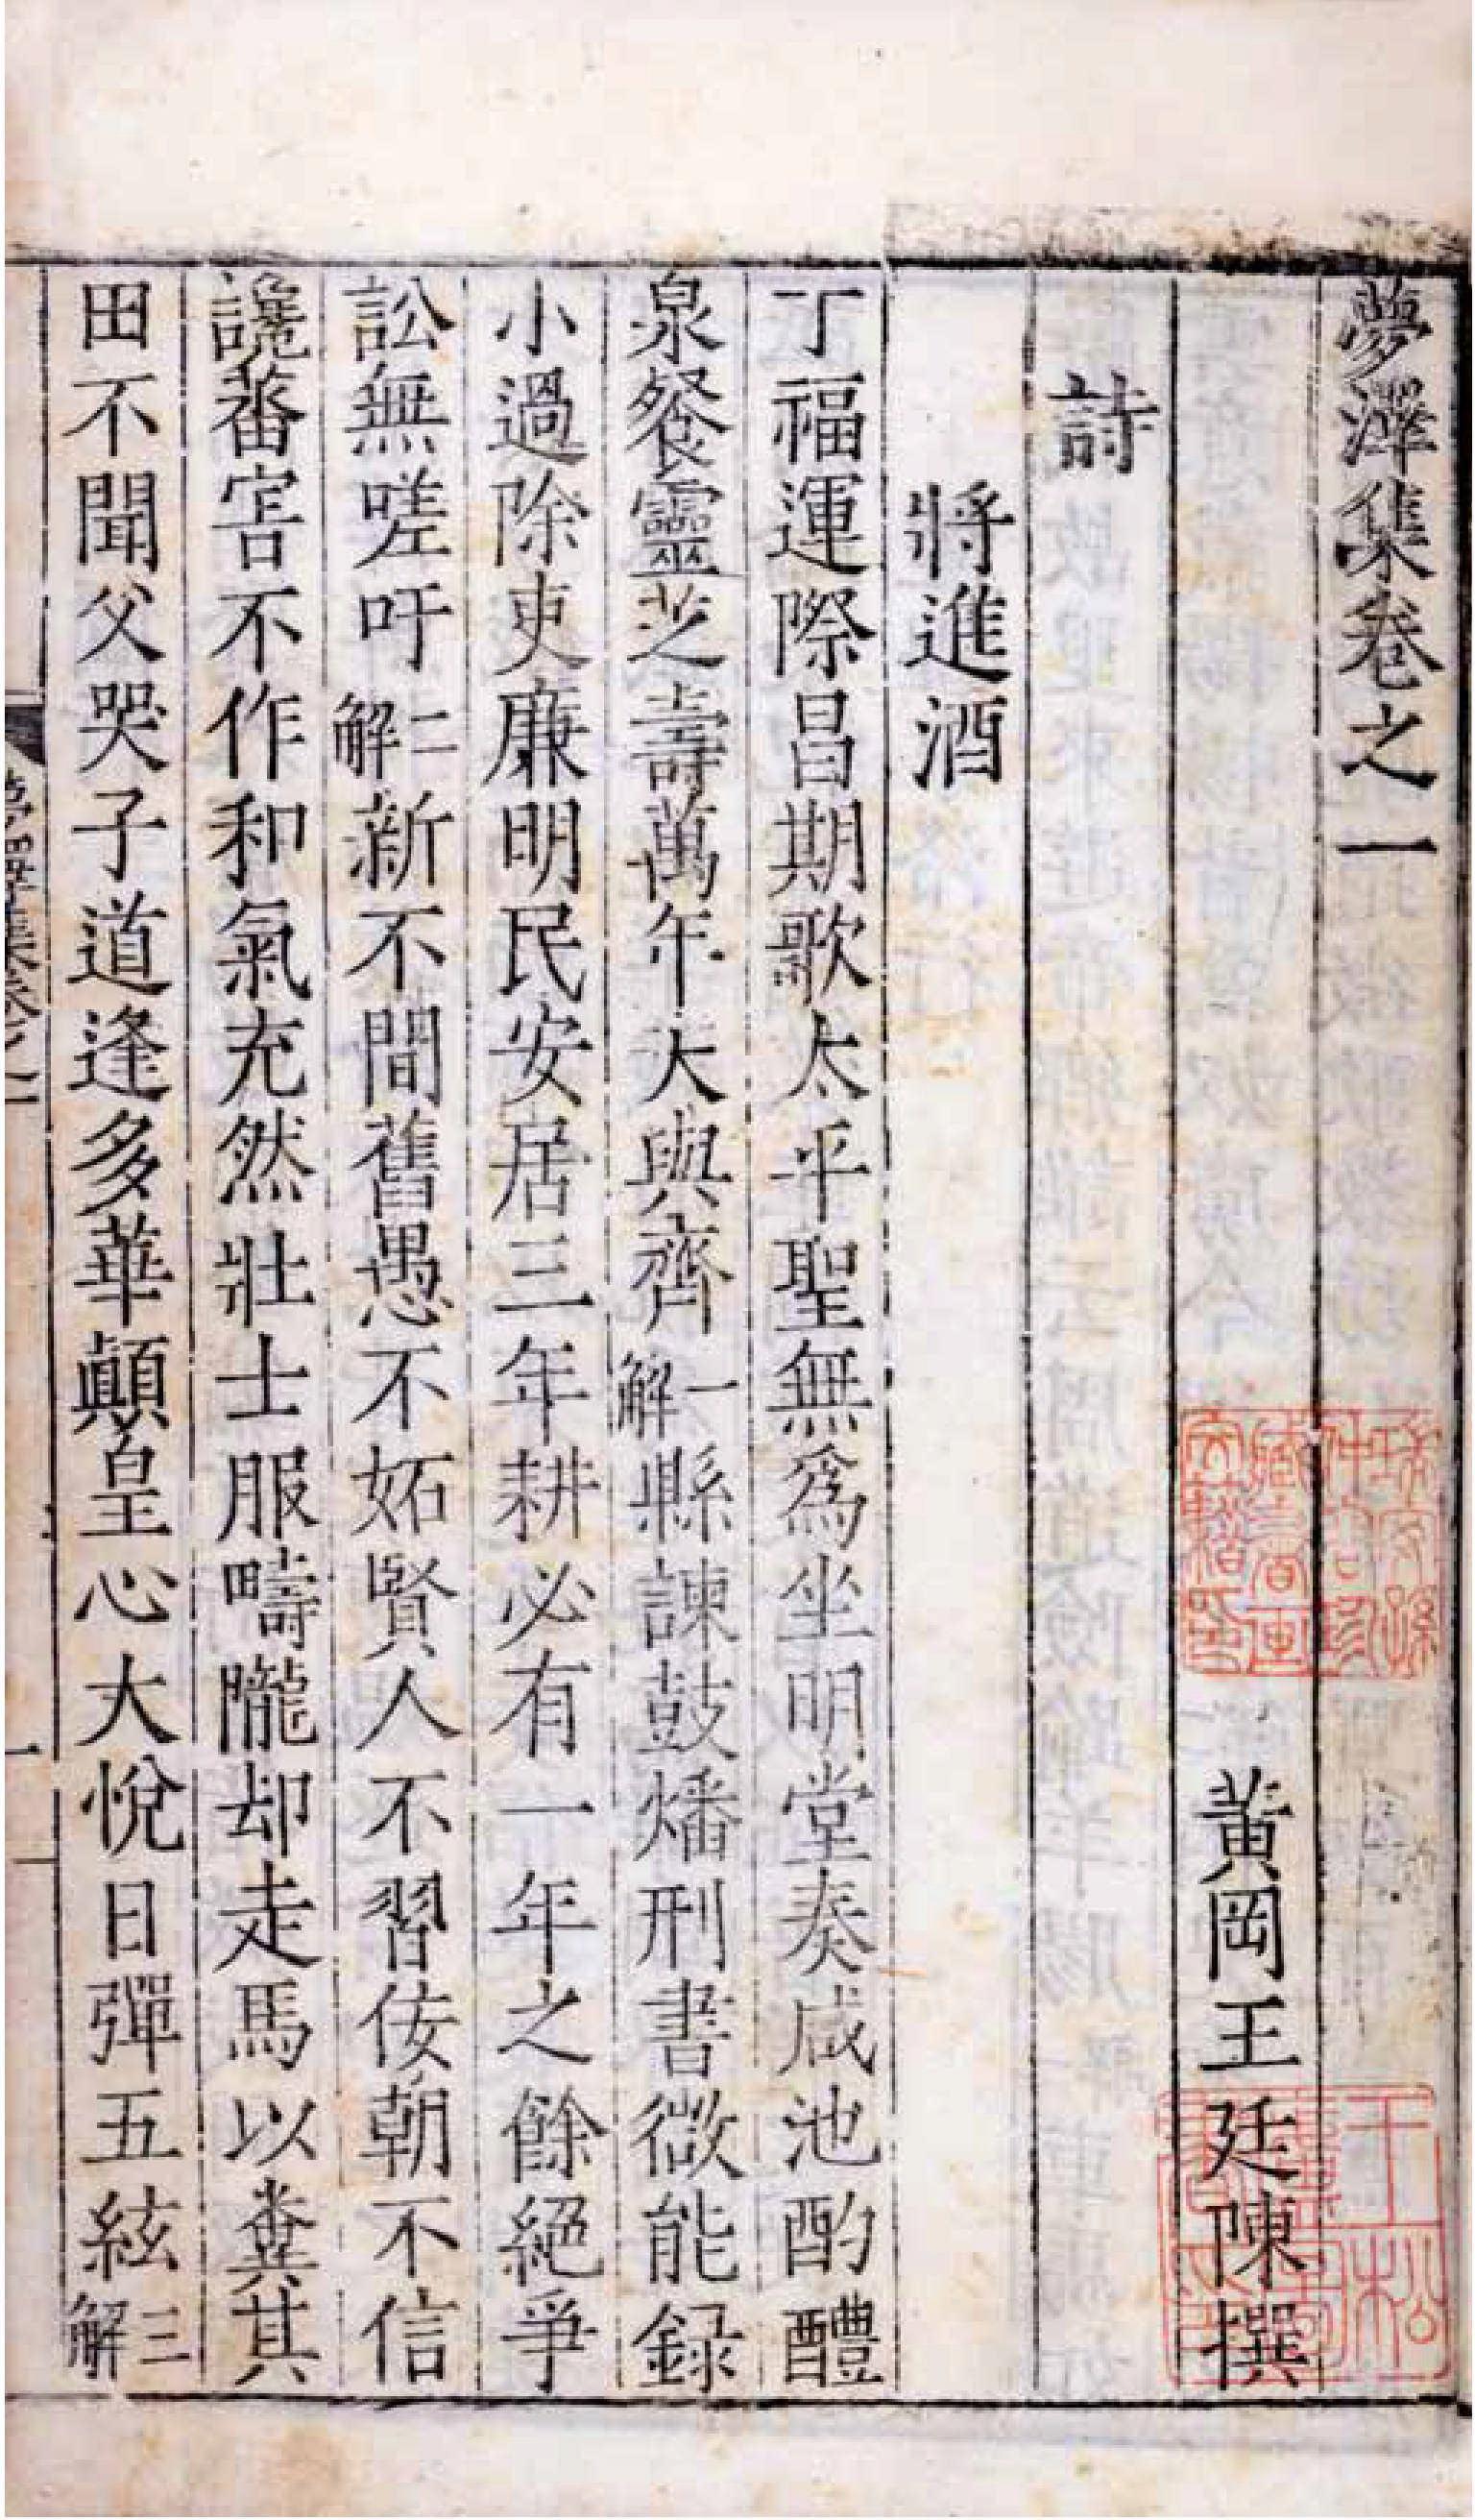 夢澤集卷之一
黃岡王廷陳撰
詩
將進酒
丁福運際昌期歌太平聖無爲坐明堂奏咸池酌醴
泉餐靈芝壽萬年天與齊一解縣諫鼓燔刑書微能録
小過除吏廉明民安居三年耕必有一年之餘絕爭
訟無嗟吁二解新不間舊愚不妬賢人不習佞朝不信
讒蕃害不作和氣充然壯士服疇隴却走馬以糞其
田不聞父哭子道逢多華顛皇心大悅日彈五絃三解
夢澤集卷之一
一